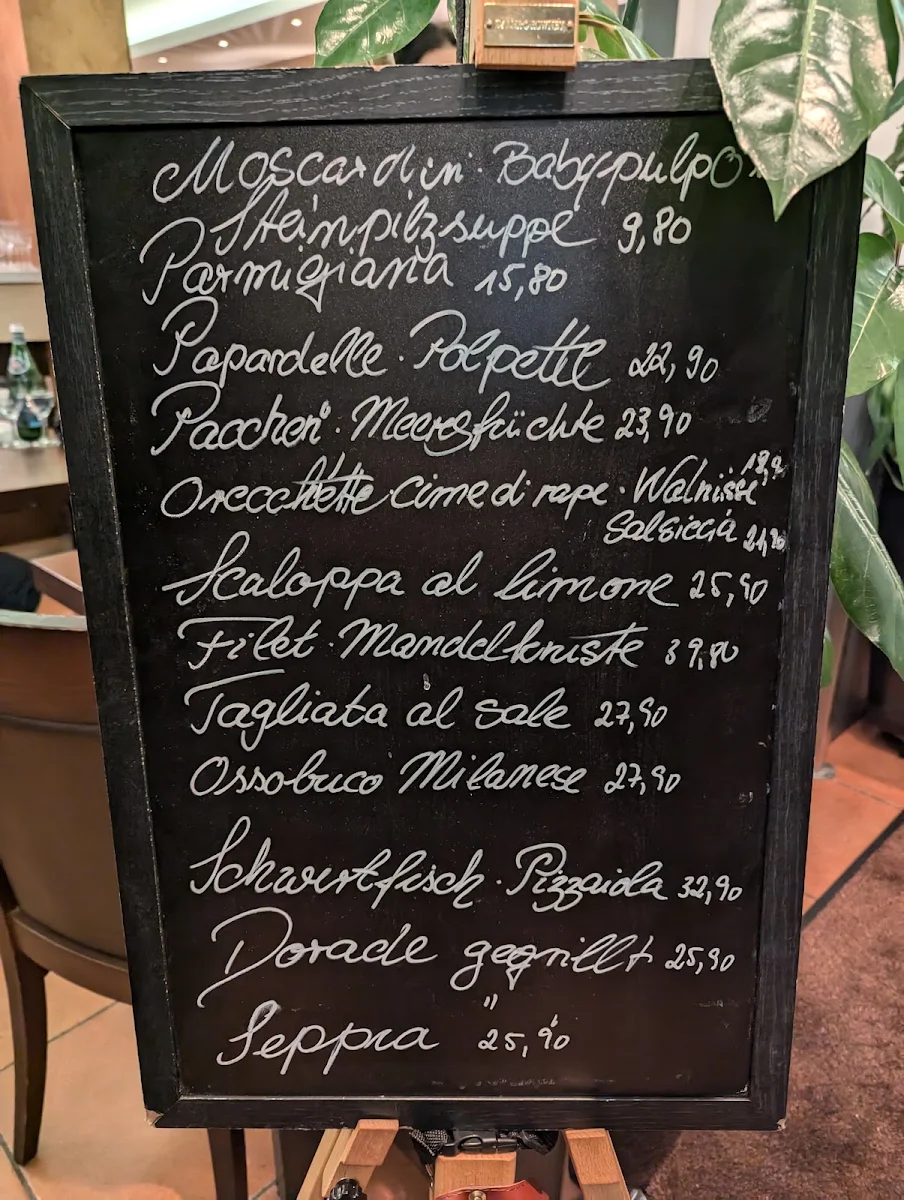 Moscardini · Babypulpo
Steinpilzsuppe 9,80
Parmigiana 15,80
Papardelle · Polpette 22,90
Paccheri · Meeresfrüchte 23,90
Orecchette cime di rape · Walnüsse
Salsiccia 21,90
Scaloppa al limone 25,90
Filet · Mandelkruste 39,80
Tagliata al sale 27,90
Ossobuco Milanese 27,90
Schwertfisch · Pizzaiola 32,90
Dorade gegrillt 25,90
Seppia " 25,90